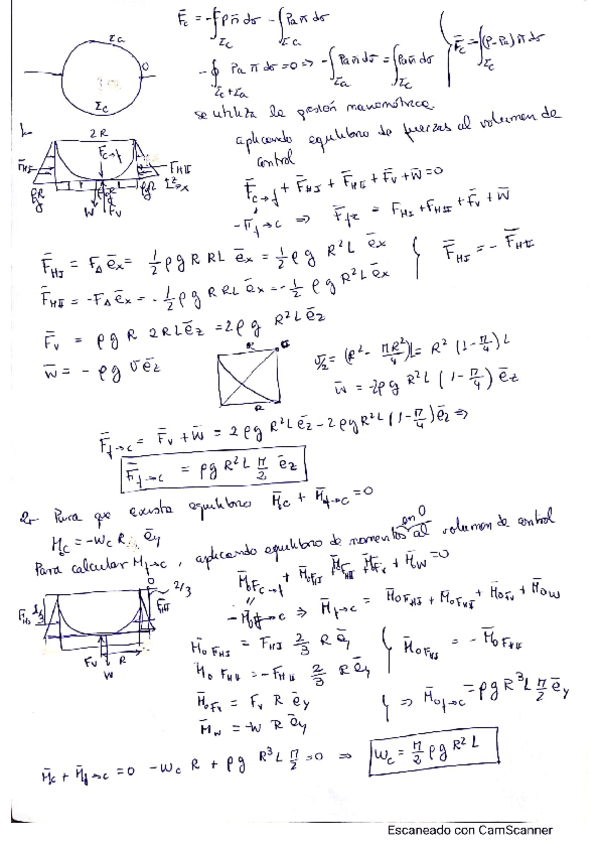 F̄c = -∮ρ n̄ dσ - ∫Pa n̄ dσ
Σc Σa
Σa
O
Σc
-∮ Pa n̄ dσ = 0 ⇒ -∫Pa n̄ dσ = ∫Pa n̄ dσ
Σc+Σa Σa Σc
F̄c = ∫(P-Pa) n̄ dσ
Σc
se utiliza la presión manométrica.
aplicando equilibrio de fuerzas al volumen de
control
1-
2R
F̄c→f
F̄HI F̄HII
ρgR
W F̄v
F̄c→f + F̄HI + F̄HII + F̄v + W̄ = 0
-F̄f→c ⇒ F̄f→c = F̄HI + F̄HII + F̄v + W̄
F̄HI = F△ ēx = 1/2 ρ g R RL ēx = 1/2 ρ g R²L ēx
F̄HI = - F̄HII
F̄HII = -F△ ēx = - 1/2 ρ g R RL ēx = - 1/2 ρ g R²L ēx
F̄v = ρ g R 2RL ēz = 2ρ g R²L ēz
W̄ = - ρ g V ēz
R
R
V/2 = (R² - πR²/4)L = R² (1 - π/4) L
W̄ = -2ρ g R²L (1 - π/4) ēz
F̄f→c = F̄v + W̄ = 2ρ g R²L ēz - 2ρ g R²L (1 - π/4) ēz ⇒
F̄f→c = ρ g R²L π/2 ēz
2- Para que exista equilibrio M̄c + M̄f→c = 0
M̄c = -Wc R ēy
en O
Para calcular M̄f→c, aplicando equilibrio de momentos al volumen de control
M̄OFc→f + M̄OFHI + M̄OFHII + M̄Fv + M̄W = 0
-M̄Of→c ⇒ M̄f→c = M̄OFHI + M̄OFHII + M̄OFv + M̄OW
O
2/3
Fv R
W
M̄OFHI = FHI 2/3 R ēy
M̄OFHII = -FHII 2/3 R ēy
M̄OFHI = - M̄OFHII
M̄OFv = Fv R ēy
M̄W = -W R ēy
⇒ M̄Of→c = ρ g R³L π/2 ēy
M̄c + M̄f→c = 0 -Wc R + ρ g R³L π/2 = 0 ⇒ Wc = π/2 ρ g R² L
Escaneado con CamScanner